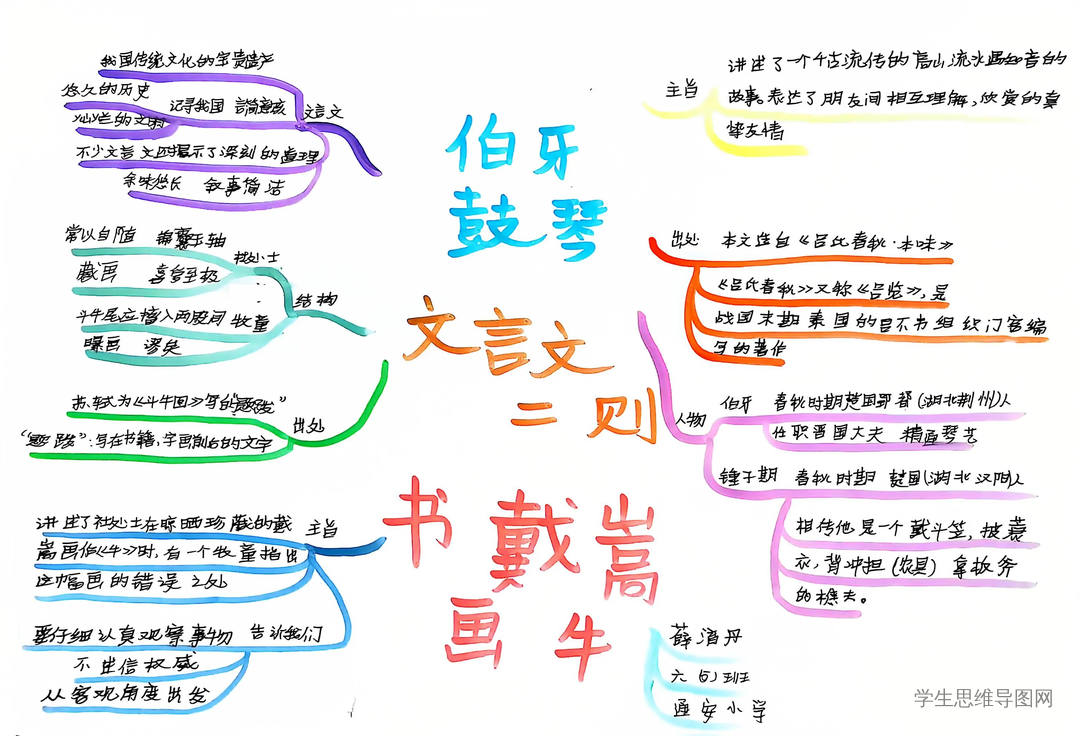 伯牙
鼓琴
文言文
二则
书戴嵩
画牛
我国传统文化的宝贵遗产
悠久的历史
灿烂的文明
记录我国 言简意赅
文言文
不少文言文还揭示了深刻的道理
余味悠长 叙事简洁
常以自随 锦囊玉轴
藏画 喜爱至极
杜处士
斗牛尾应搐入两股间 牧童
曝画 谬矣
结构
苏轼为《斗牛图》写的“题跋”
“题跋”:写在书籍、字画前后的文字
出处
讲述了杜处士在晾晒珍藏的戴
嵩画作《牛》时,有一个牧童指出
这幅画的错误之处
主旨
要仔细认真观察事物 告诉我们
不迷信权威
从客观角度出发
主旨
讲述了一个千古流传的高山流水遇知音的
故事。表达了朋友间相互理解,欣赏的真
挚友情
出处 本文选自《吕氏春秋·本味》
《吕氏春秋》又称《吕览》,是
战国末期秦国的吕不韦组织门客编
写的著作
人物
伯牙 春秋时期楚国郢都(湖北荆州)人
任职晋国大夫 精通琴艺
锺子期 春秋时期 楚国(湖北汉阳)人
相传他是一个戴斗笠,披蓑
衣,背冲担(农具)拿板斧
的樵夫。
丹
六(5)班
通安小学
学生思维导图网